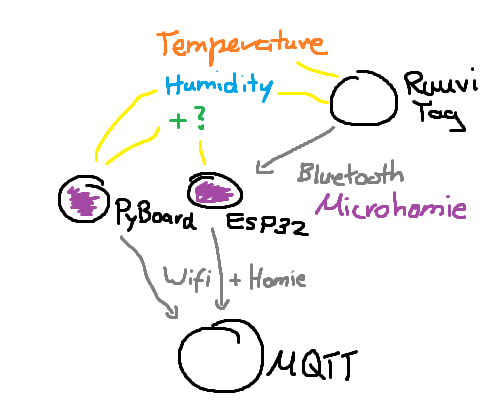 Temperature
Humidity
+ ?
Ruuvi
Tag
Bluetooth
Microhomie
PyBoard
ESP32
Wifi + Homie
MQTT